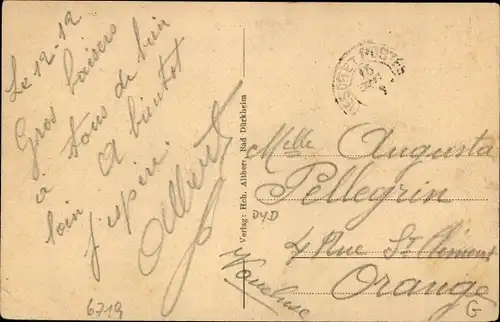 Le 12-12
Gros baisers
à tous de bien
loin A bientot
j'espère.
Albert
Verlag: Hch. Altherr, Bad Dürkheim
TRESOR ET POSTES
15
Melle Augusta
Pellegrin
4 Rue St Clément
Orange
Vaucluse
DYD
6719
G